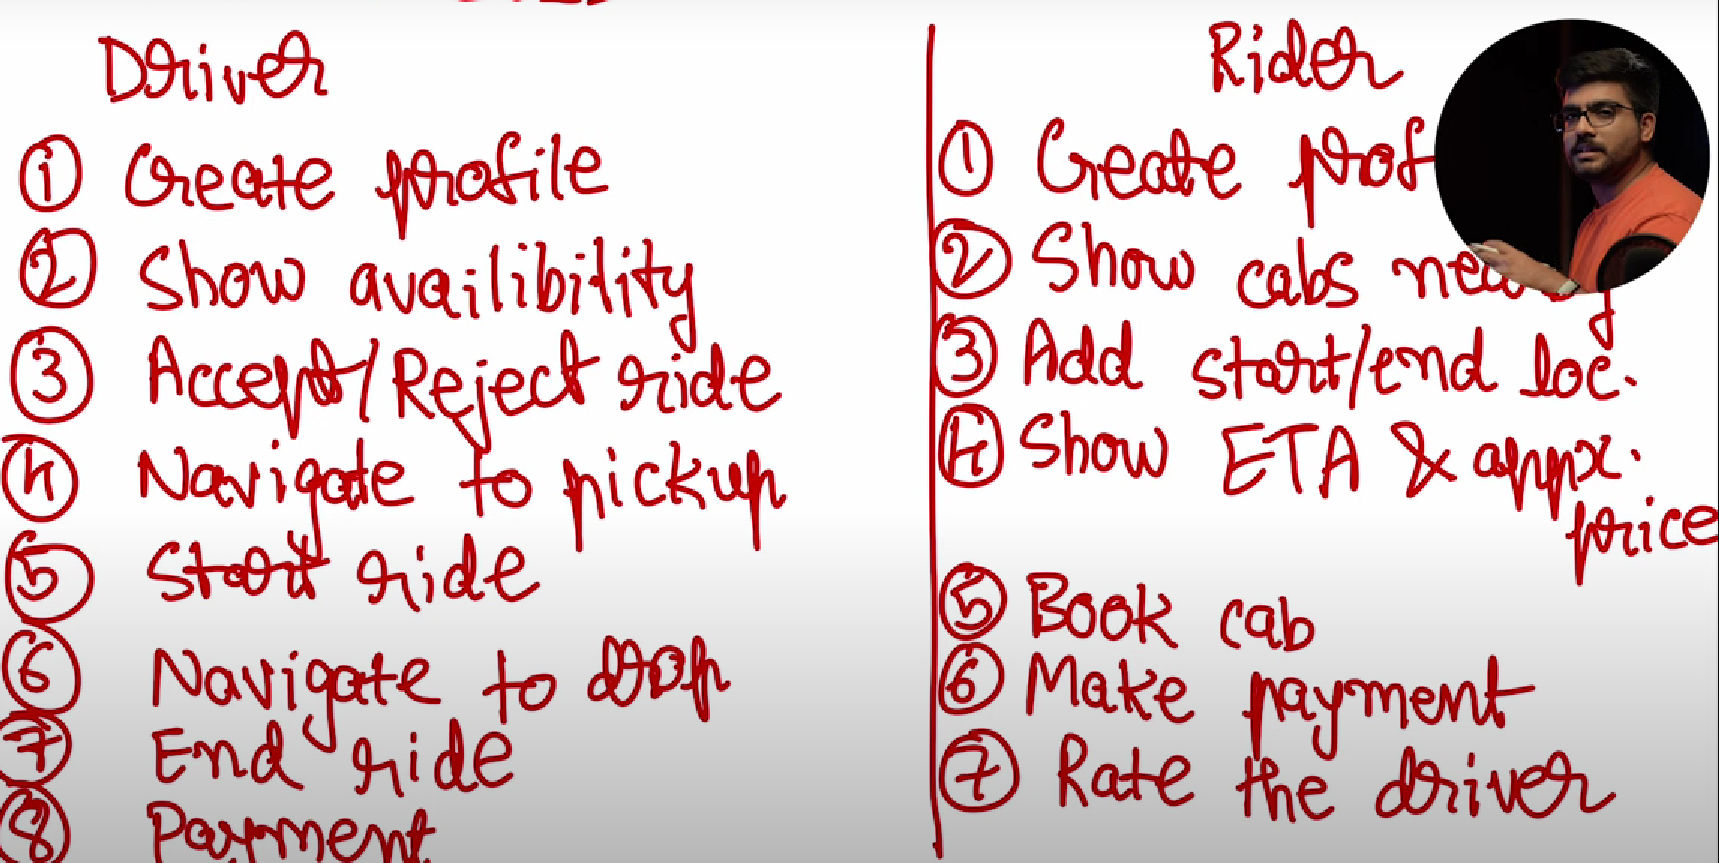 Driver
① Create profile
② Show availibility
③ Accept/Reject ride
④ Navigate to pickup
⑤ Start ride
⑥ Navigate to drop
⑦ End ride
⑧ Payment
Rider
① Create prof
② Show cabs
③ Add start/end loc.
④ Show ETA & appx.
price
⑤ Book cab
⑥ Make payment
⑦ Rate the driver